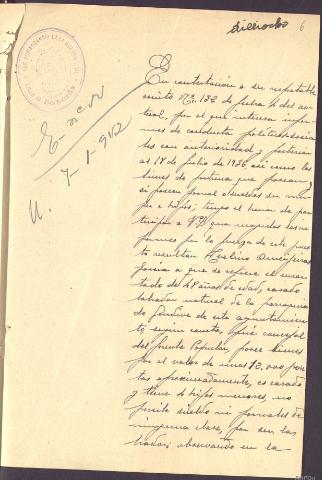 dieciocho 6
En contestación a su respetable
escrito Nº 132 de fecha 4 del ac-
tual, por el que interesa infor-
mes de conducta politico-socia-
les con anterioridad y posterior
al 18 de Julio de 1936 así como los
bienes de fortuna que posean
si poseen igual o
e hijos; tengo el honor de par-
ticipar a V.S. que adquiridos los in-
formes por la fuerza de este pues-
to resultan
Garcia a que se refiere el encar-
tado de 48 años de edad, casado
labrador natural de la parroquia
de de este ayuntamien-
to, según consta, fué concejal
del frente Popular, posee bienes
por el valor de unas 12.000 pese-
tas aproximadamente, es casado
y tiene 4 hijos menores, no
percibe sueldo ni jornales de
ninguna clase, por ser la-
brador; observando en la
7-1-942